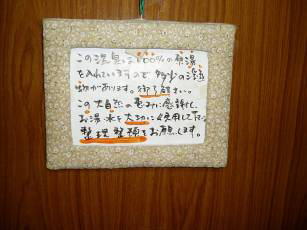 この温泉は100%の源湯
を入れていますので多少の浮遊
物があります。御了願さい。
この大自然の恵みに感謝し、
お湯、水を大切に使用して下さい
整理整頓をお願します。